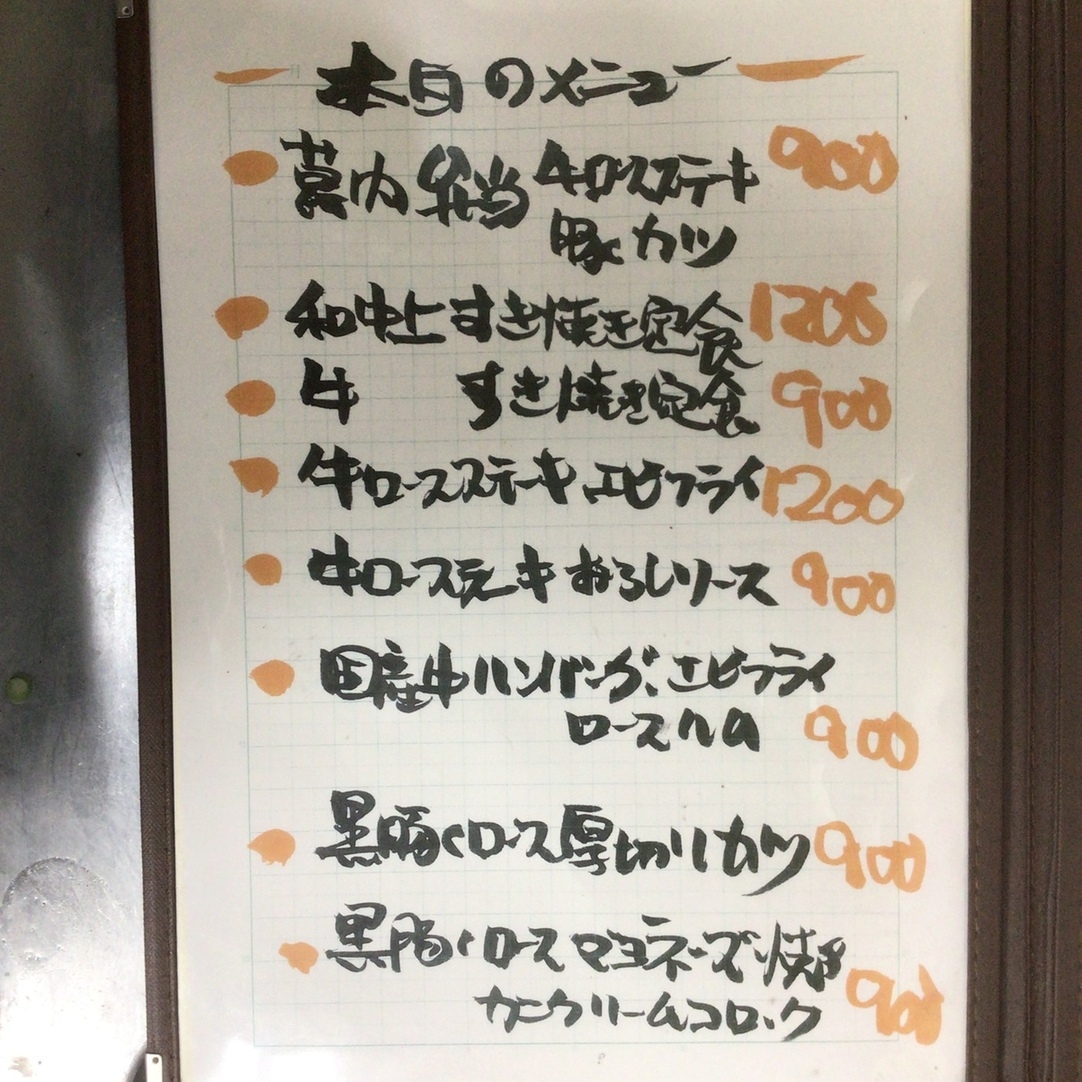 本日のメニュー
幕内弁当 牛ロースステーキ 900
豚カツ
和牛上すき焼き定食 1200
牛 すき焼き定食 900
牛ロースステーキ エビフライ 1200
牛ロースステーキ おろしソース 900
国産牛ハンバーグ、エビフライ
ロースハム 900
黒豚ロース厚切りカツ 900
黒豚ロースマヨネーズ焼き
カニクリームコロッケ 900